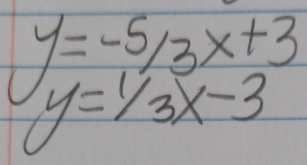 y=-5/3x+3
y=1/3x-3